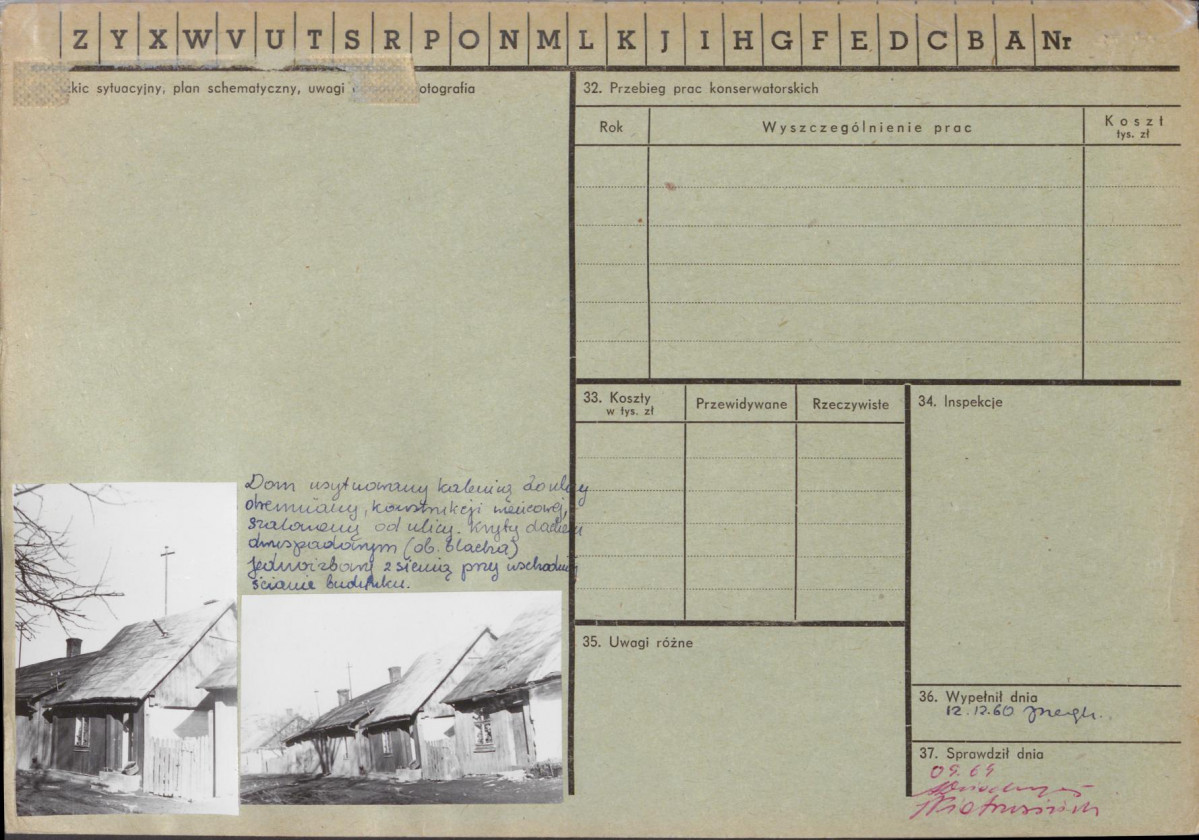 Z Y X W V U T S R P O N M L K J I H G F E D C B A Nr
kic sytuacyjny, plan schematyczny, uwagi otografia
Dom usytuowany kalenicą do ulicy
drewniany, konstrukcji wieńcowej,
szalowany od ulicy. Kryty dachem
dwuspadowym (ob. blacha)
jednoizbowy z sienią przy wschodniej
ścianie budynku.
32. Przebieg prac konserwatorskich
Rok Wyszczególnienie prac Koszt
tys. zł
33. Koszty Przewidywane Rzeczywiste
w tys. zł
34. Inspekcje
35. Uwagi różne
36. Wypełnił dnia
12.12.60
37. Sprawdził dnia
09.69